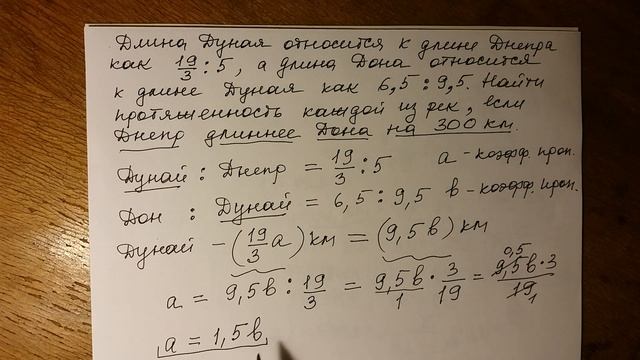 Длина Дуная относится к длине Днепра
как 19/3 : 5, а длина Дона относится
к длине Дуная как 6,5 : 9,5. Найти
протяженность каждой из рек, если
Днепр длиннее Дона на 300 км.
Дунай : Днепр = 19/3 : 5 a - коэфф. проп.
Дон : Дунай = 6,5 : 9,5 b - коэфф. проп.
Дунай - (19/3 a) км = (9,5b) км
a = 9,5b : 19/3 = 9,5b/1 · 3/19 = 9,5b·3/19 0,5 1
a = 1,5b